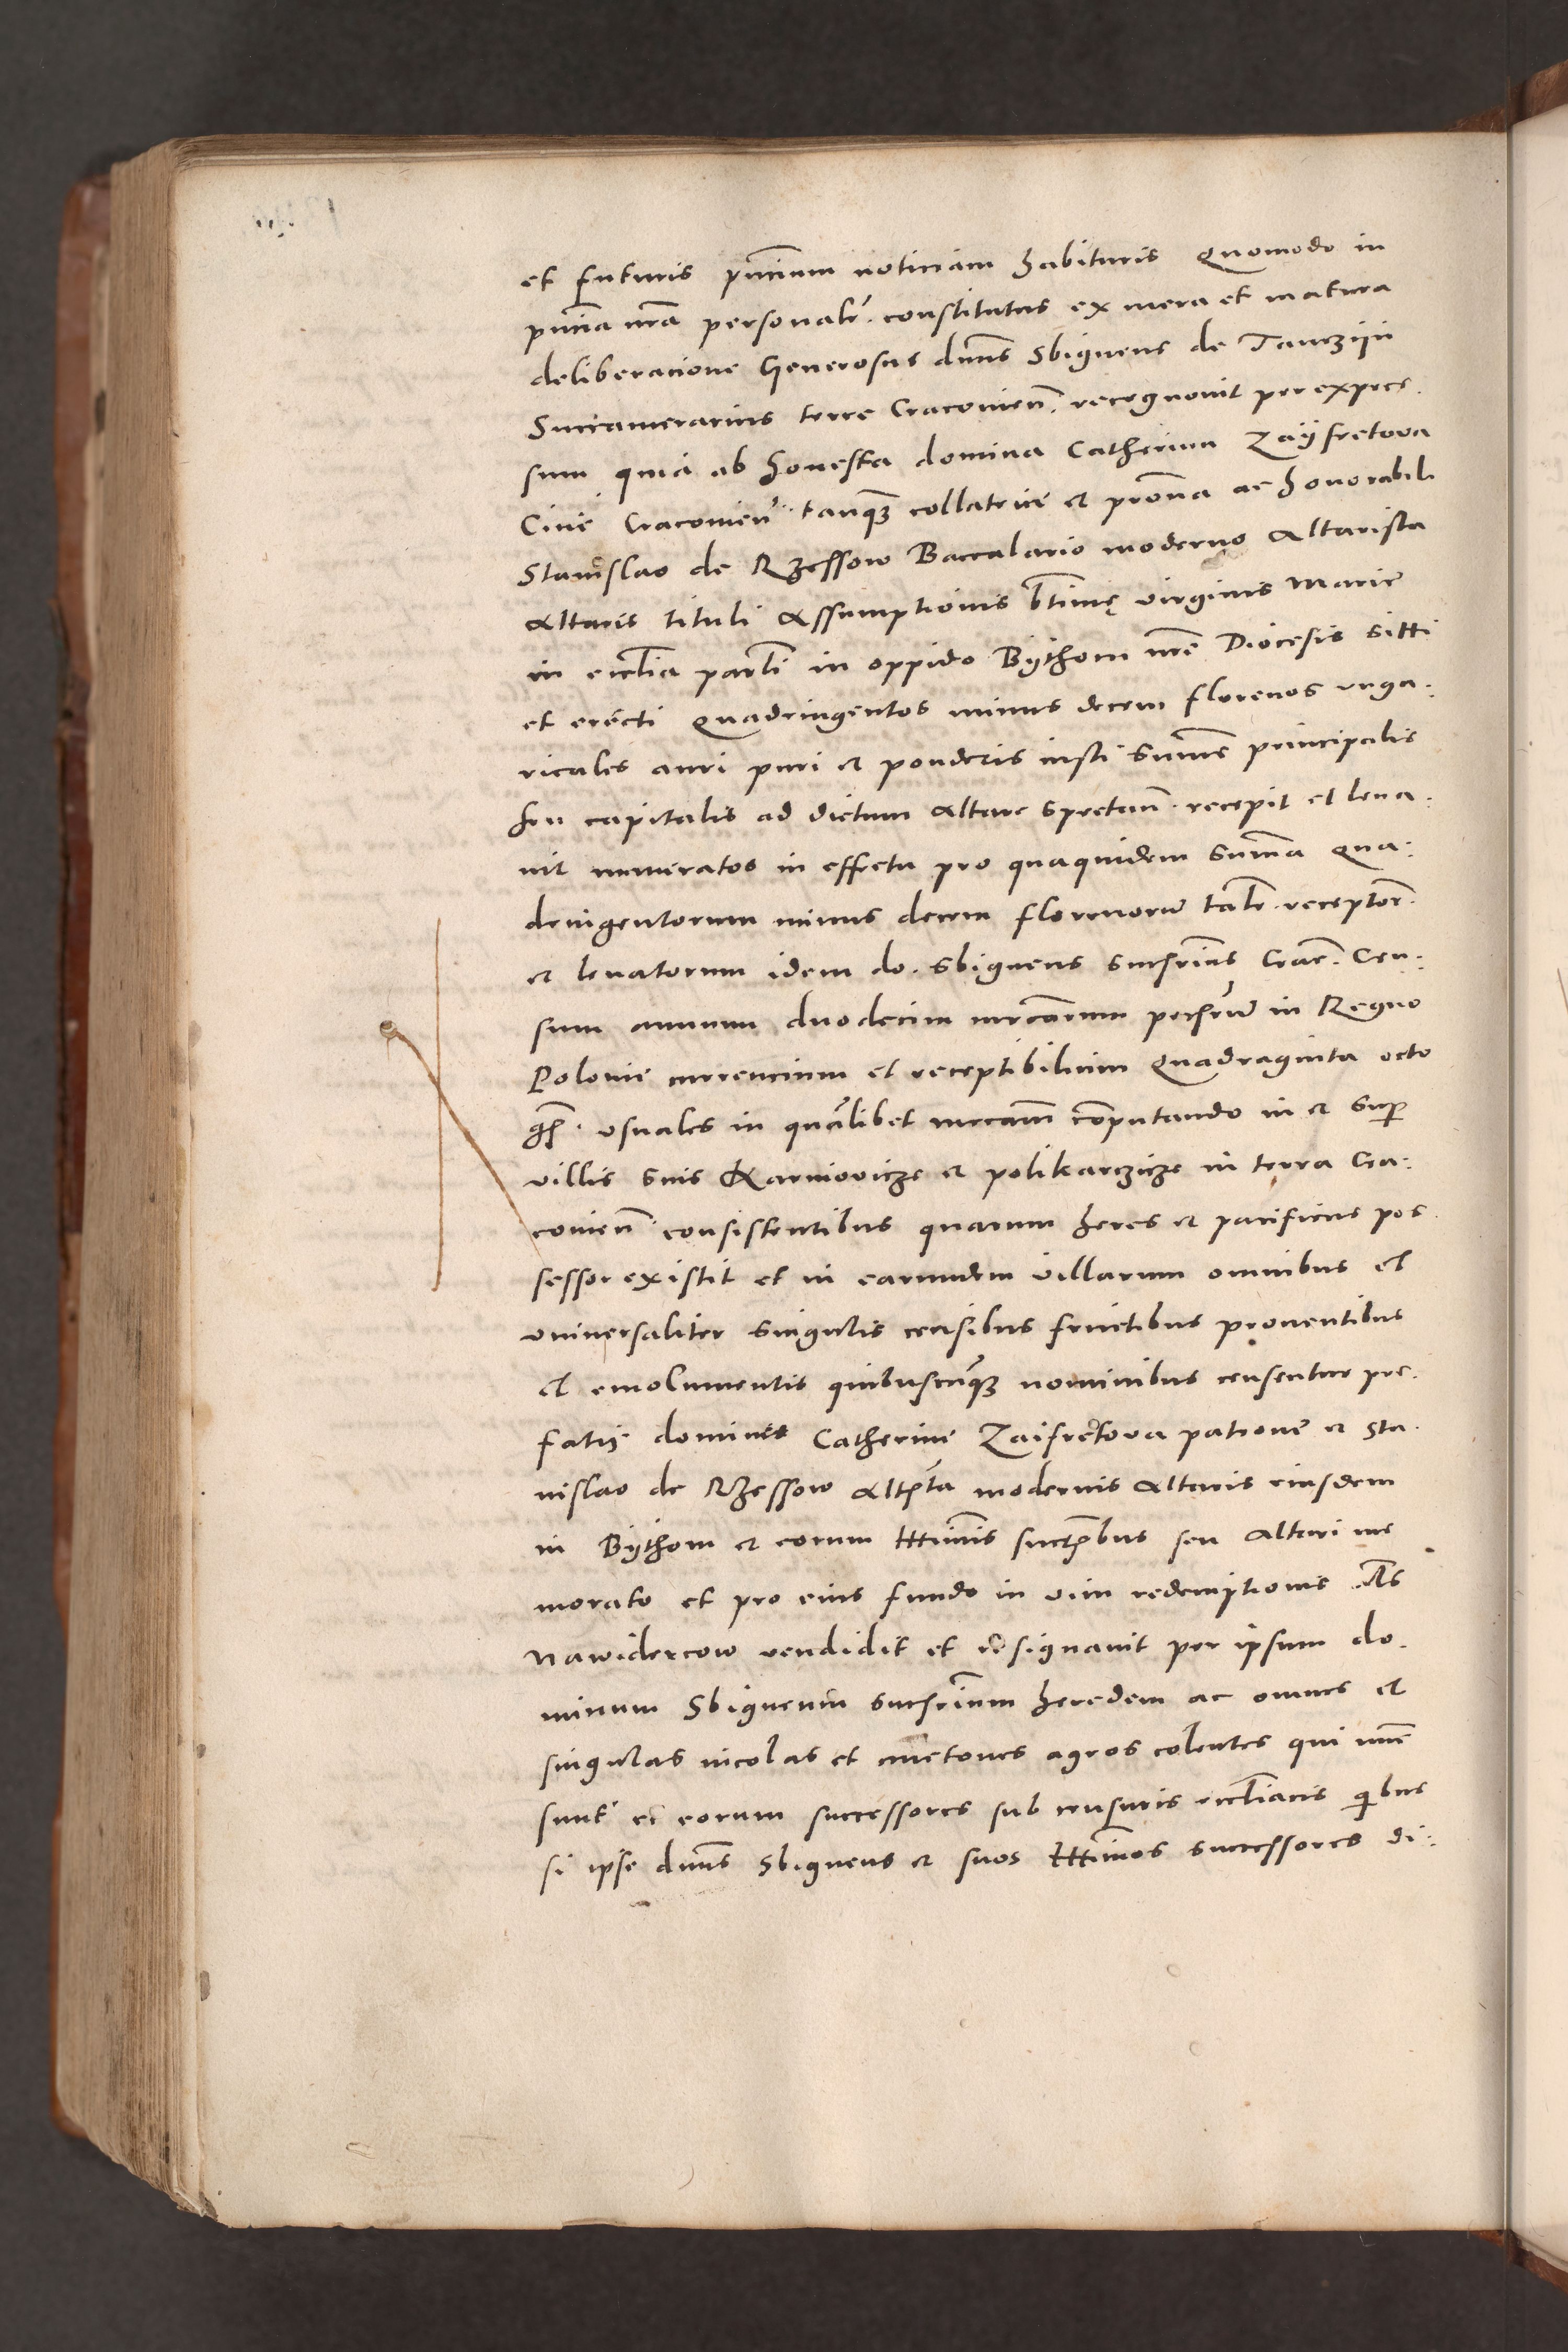 et futuris pn̄cium noticiam habituris Quomodo in
pn̄cia nr̄a personalr̄. constitutus ex mera et matura
deliberacione Generosus dn̄us Sbigneus de Tanczijn
Succamerarius terre Cracovien̄. recognovit per expres-
sum quia ab honesta domina Catherina Zaijfretova
Cive Cracovien̄. tanq̄ȝ collatrice et pr̄ona ac honorabili
Stanislao de Rzessow Baccalario moderno Altarista
Altaris tituli Assumptionis btīmę virginis Marie
in eccl̄ia parl̄i in oppido Bijthom nr̄e Diocesis sitti
et erecti Quadringentos minus decem florenos unga:
ricales auri puri et ponderis iusti sum̄e principalis
seu capitalis ad dictum Altare spectan̄. recepit et leva:
vit numeratos in effectu pro quaquidem sum̄a Qua:
dringentorum minus decem florenorum tal̄r. receptor̄.
et levatorum idem do. Sbigneus succ̄rius Crac̄. Cen:
sum annuum duodecim mrc̄arum pec̄iarum in Regno
Polonie currencium et receptibilium Quadraginta octo
gr̄. usuales in qual̄ibet mrcam̄ cōputando in et sup̄
villis suis Karniovicze et polikarczicze in terra Cra:
covien̄. consistentibus quarum heres et pacificus pos-
sessor existit et in earundem villarum omnibus et
universaliter singulis censibus fructibus proventibus
et emolumentis quibuscūq̄ȝ nominibus censeantur pre-
fatis domine Catherine Zaifretova patrone et Sta-
nislao de Rzessow Altr̄ta modernis Altaris eiusdem
in Bijthom et eorum ltt̄imis succ̄ribus seu Altari me
morato et pro eius fundo in vim redemptionis Als
Nawidercow vendidit et resignavit per ipsum do-
minum Sbigneum succ̄rium heredem ac omnes et
singulas incolas et cmetones agros colentes qui nun̄c
sunt et eorum successores sub censuris eccl̄iacis q̄ibus
si ipse dn̄us Sbigneus et suos ltt̄imos successores di: